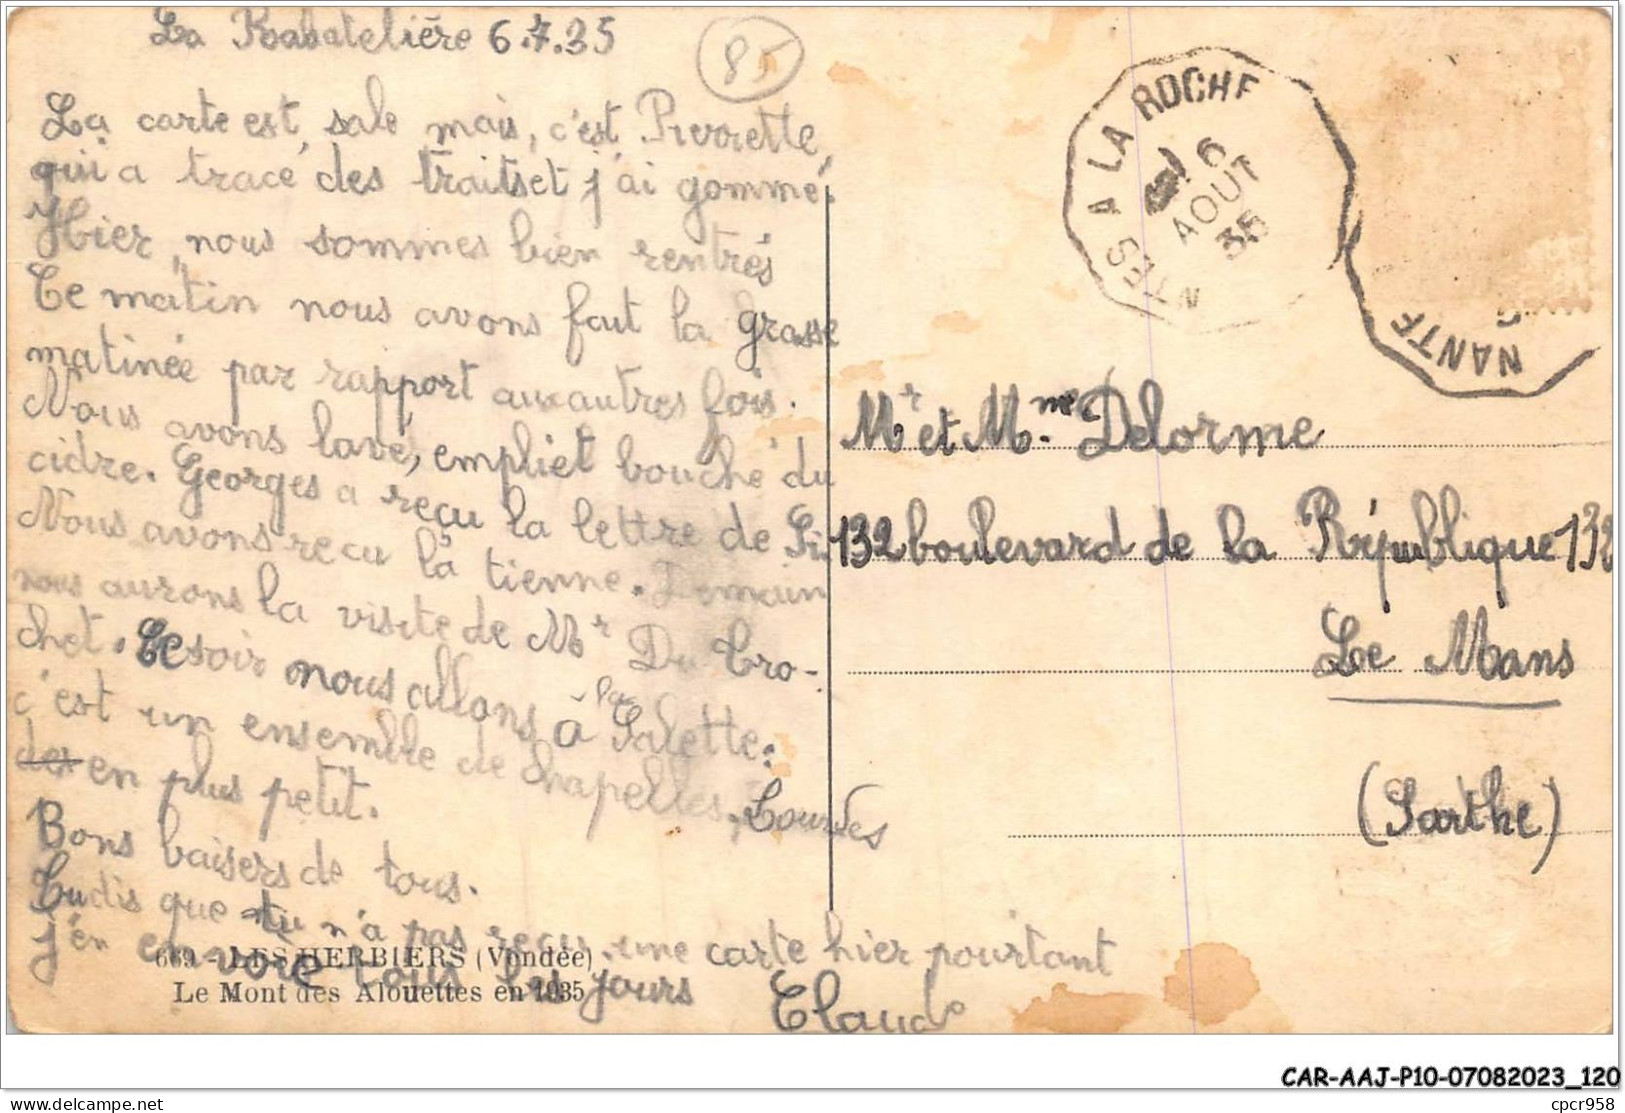 La Rabatelière 6.7.35
85
La carte est sale mais, c'est Pierrette,
qui a tracé des traits et j'ai gommé.
Hier, nous sommes bien rentrés
Ce matin nous avons fait la grasse
matinée par rapport aux autres fois.
Nous avons lavé, emplie t bouché du
cidre. Georges a reçu la lettre de
Nous avons reçu la tienne. Demain
nous aurons la visite de Mr Du Cro-
chet. Ce soir nous allons à la Salette.
c'est un ensemble de chapelles, Lourdes
en plus petit.
Bons baisers de tous.
Tu dis que tu n'a pas reçu une carte hier pourtant
j'en envoie tous les jours
Claude
669 - LES HERBIERS (Vendée)
Le Mont des Alouettes en 1935
NTES A LA ROCHE
6
AOUT
35
NANTE
Mr et Mme Delorme
132 boulevard de la République 132
Le Mans
(Sarthe)
CAR-AAJ-P10-07082023_120
cpcr958